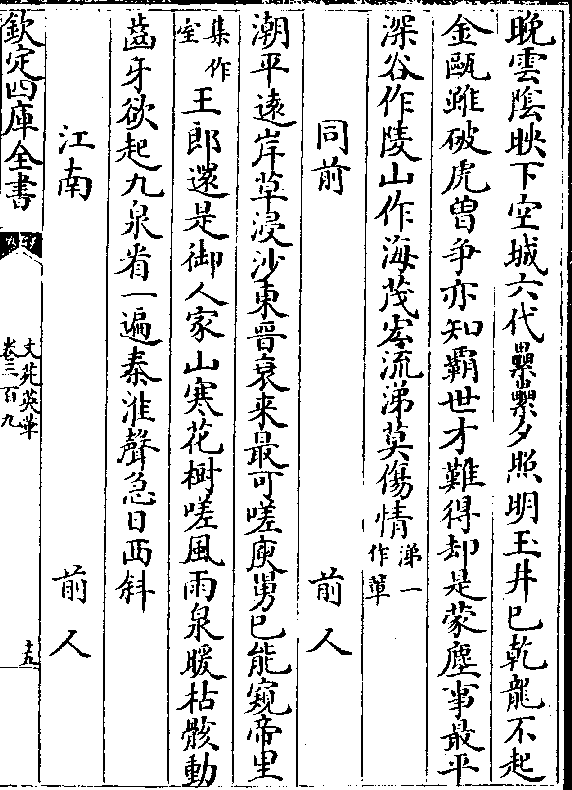 晚雲陰映下空城六代纍纍夕照明玉井已乾龍不起
金甌雖破虎曽争亦知霸世才難得却是蒙塵事最平
深谷作陵山作海茂𢎞流涕莫傷情涕一作輩
同前 前人
潮平遠岸草浸沙東晉衰来最可嗟庾舅已能窺帝里
集作室王郎還是御人家山寒花樹嗟風雨泉暖枯骸動
齒牙欲起九泉看一遍秦淮聲急日西斜
江南 前人
欽定四庫全書
文苑英華
卷三百九
十五